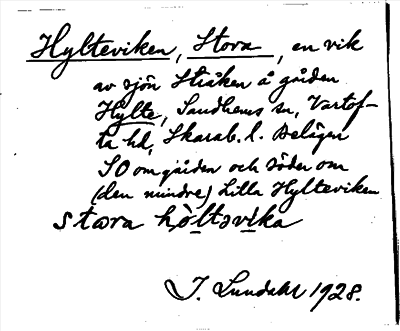 Hylteviken, Stora, en vik
av sjön Stråken å gården
Hylte, Sandhems sn, Vartof-
ta hd, Skarab. l. Belägen
SO om gården och söder om
(den mindre) Lilla Hylteviken
stɷra hòltəvika
I. Lundahl 1928.